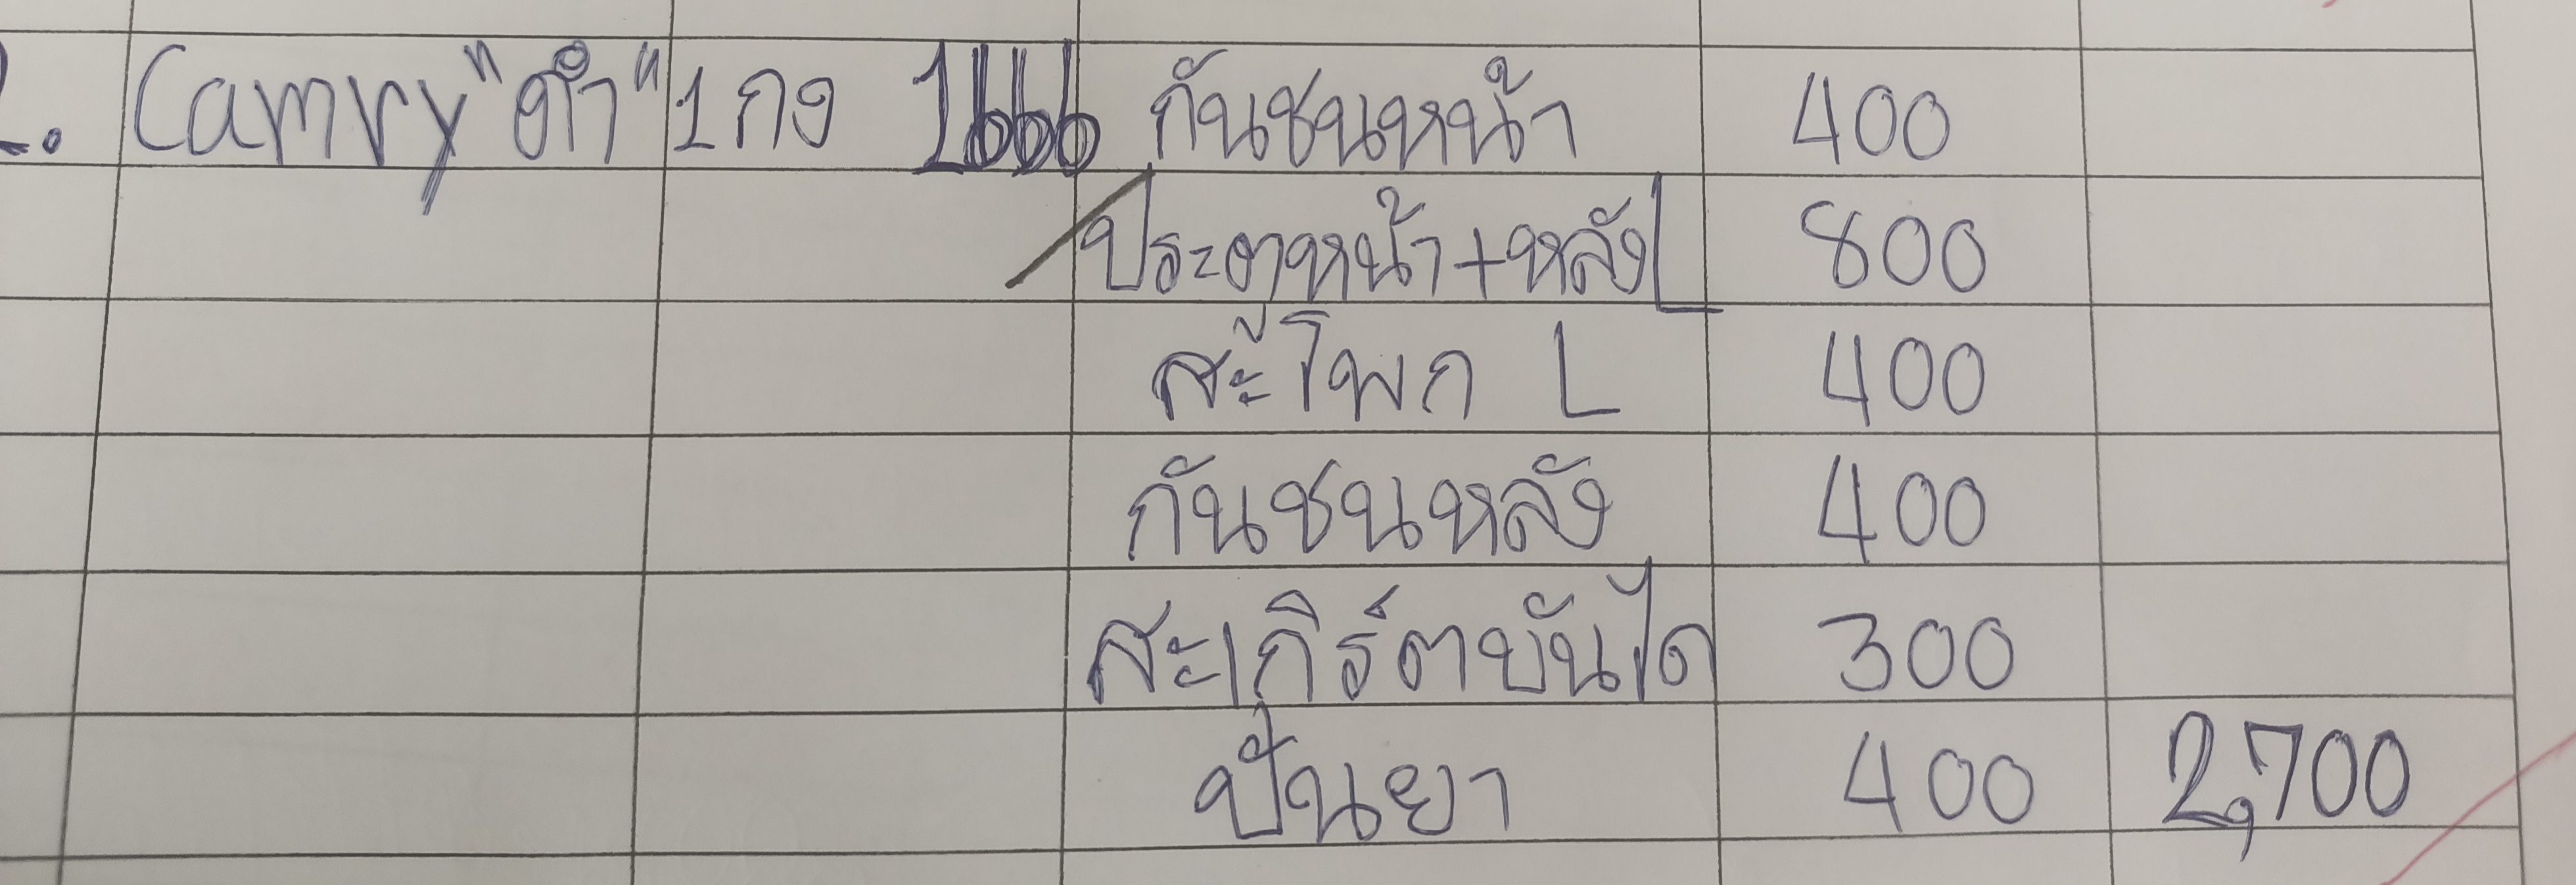 2. Camry "ดำ" 1 กง 1666 กันชนหน้า 400
ประตูหน้า+หลัง L 800
สะโพก L 400
กันชนหลัง 400
สะเกิร์ตบันได 300
ปั่นยา 400 2,700